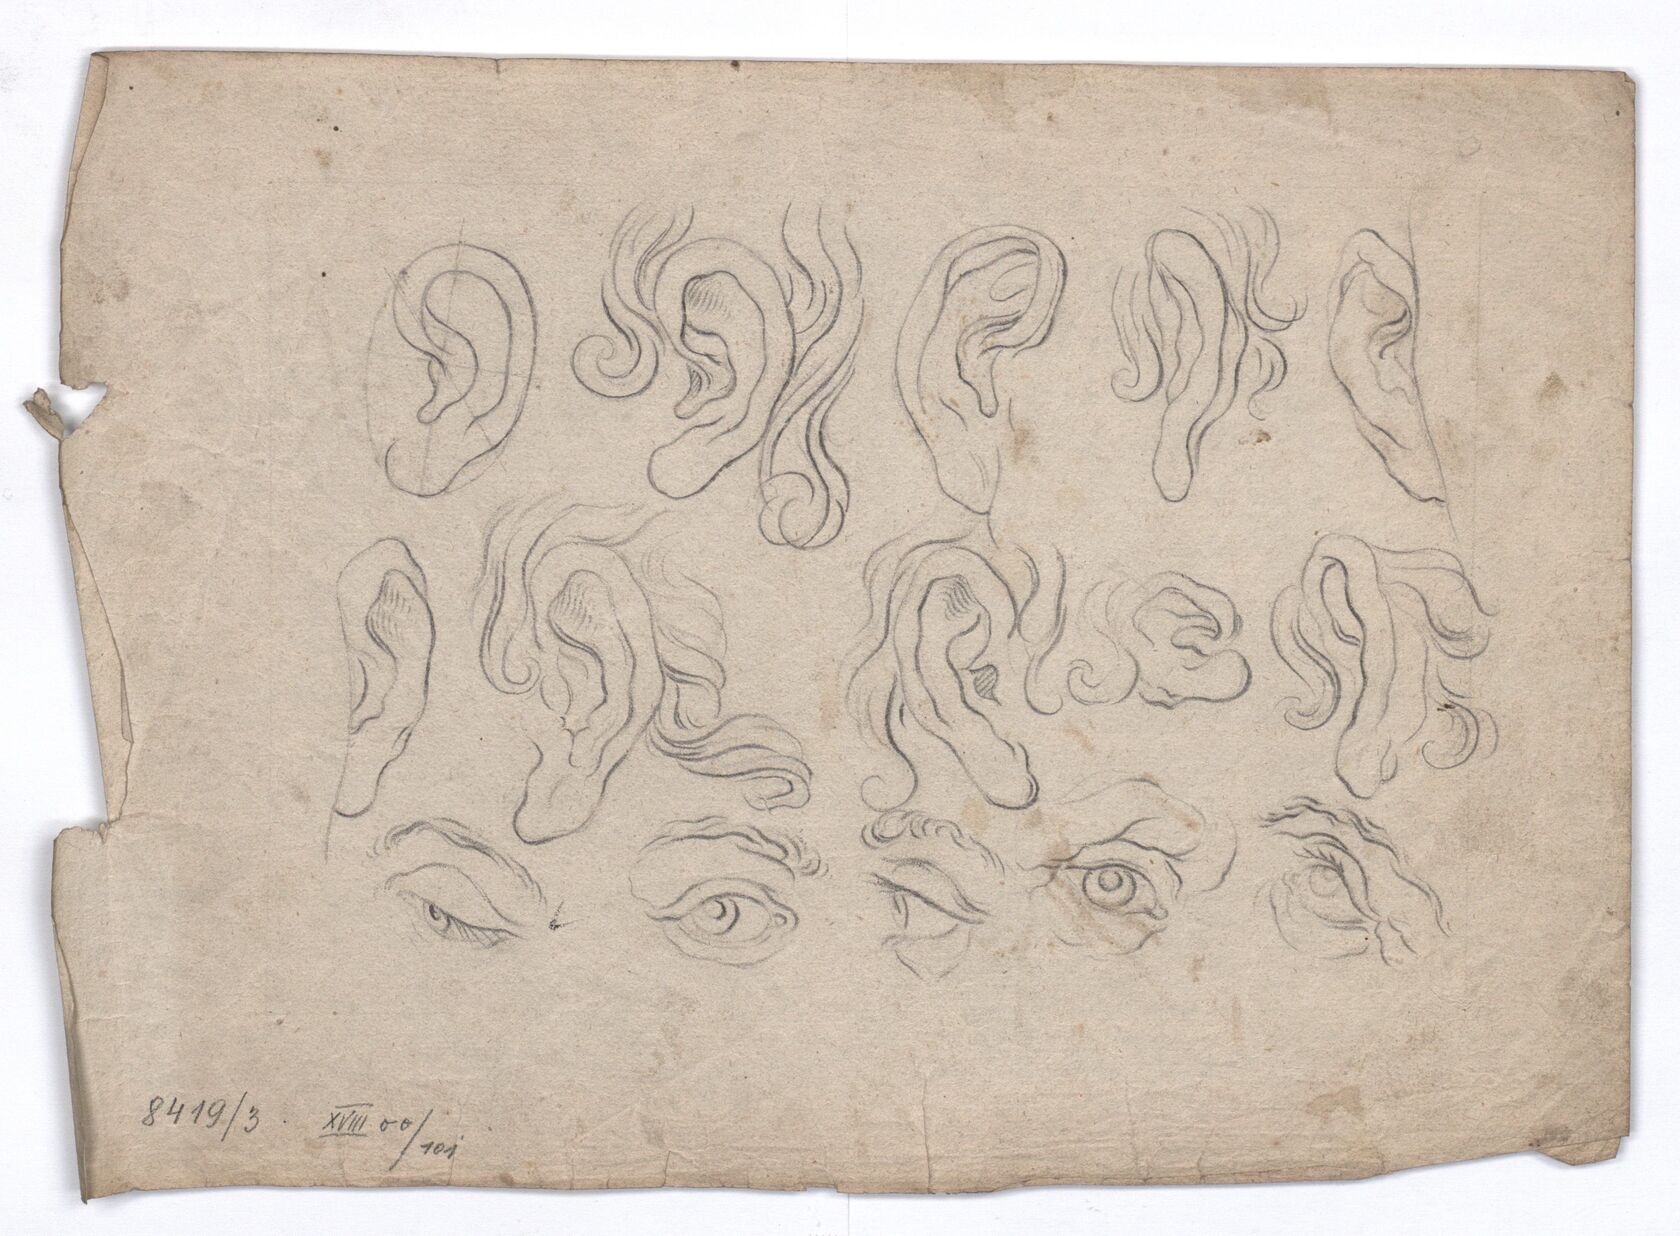 8419/3. XVIII 00/101